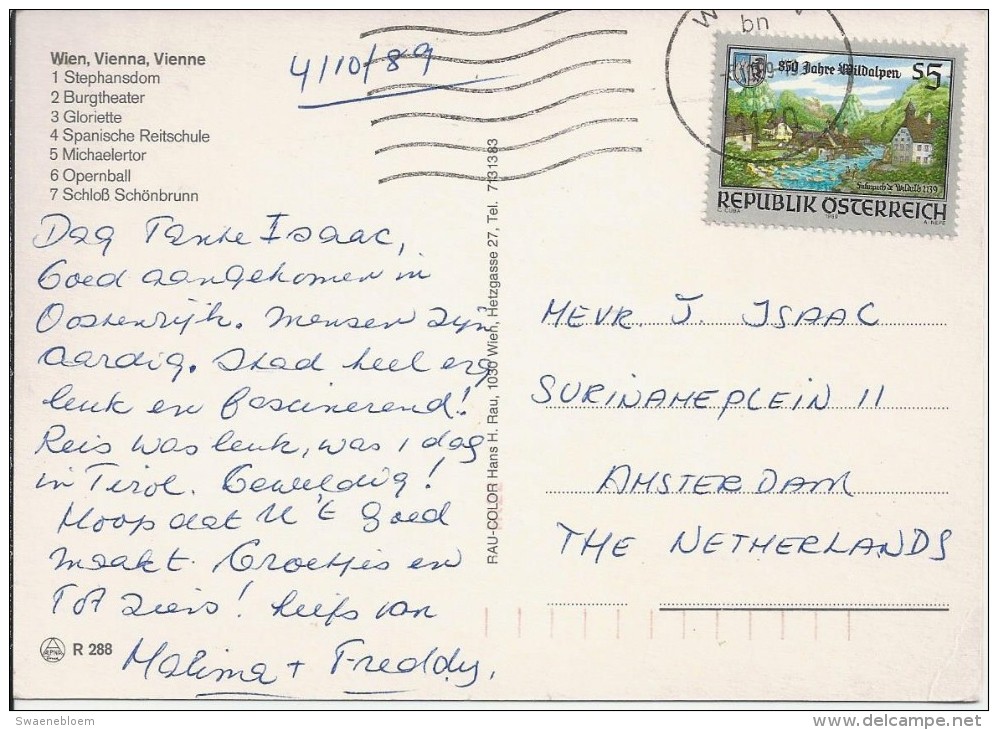 Wien, Vienna, Vienne
1 Stephansdom
2 Burgtheater
3 Gloriette
4 Spanische Reitschule
5 Michaelertor
6 Opernball
7 Schloß Schönbrunn
4/10/89
bn
850 Jahre Wildalpen
S5
REPUBLIK ÖSTERREICH
1989
Dag Tante Isaac,
Goed aangekomen in
Oostenrijk. Mensen zijn
aardig. Stad heel erg
leuk en fascinerend!
Reis was leuk, was 1 dag
in Tirol. Geweldig!
Hoop dat U 't goed
maakt. Groetjes en
Tot ziens! liefs van
Malima + Freddy.
R 288
RAU-COLOR Hans H. Rau, 1030 Wien, Hetzgasse 27, Tel. 7131383
MEVR. J. ISAAC
SURINAMEPLEIN 11
AMSTERDAM
THE NETHERLANDS
Swaenebloem
delcampe.net